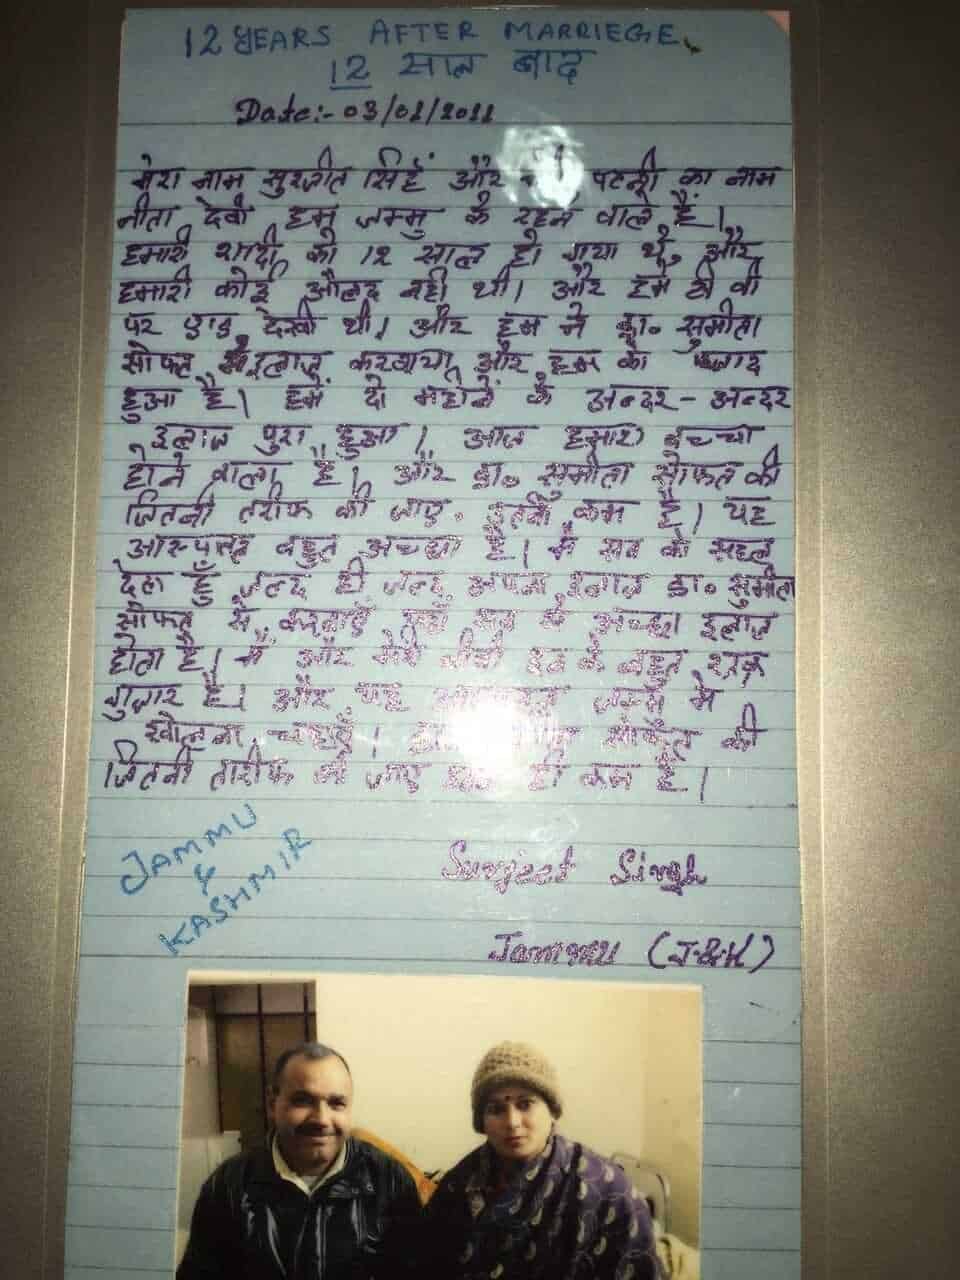 12 YEARS AFTER MARRIEGE
12 साल बाद
Date:- 03/01/2011
मेरा नाम सुरजीत सिहं और पत्नी का नाम
नीता देवी हम जम्मु के रहने वाले हैं।
हमारी शादी को 12 साल हो गया थे, और
हमारी कोई औलद नही थी। और हमे टी वी
पर एाड देखी थी। और हम ने डा. सुमीता
सोफत से इलाज करवाया और हम को
हुआ है। हमें दो महीने के अन्दर - अन्दर
इलाज पुरा हुआ। आज हमारा बच्चा
होने वाला है। और डा. सुमीता सोफत की
जितनी तरीफ की जाए. इतनी कम है। यह
बहुत अच्छा है। मैं सब को सहल
देता हुँ जल्द ही जल्द अपना इलाज डा. सुमीता
सोफत से करवाऐं सब से अच्छा इलाज
होता है। मैं और मेरी बीवी इन के बहुत शुक्र
गुजार है। और यह जम्मु मे
खोलना चाहऐं। सोफत की
जितनी तारीफ की जाए ही कम है।
JAMMU
&
KASHMIR
Surjeet Singh
Jammu (J&K)